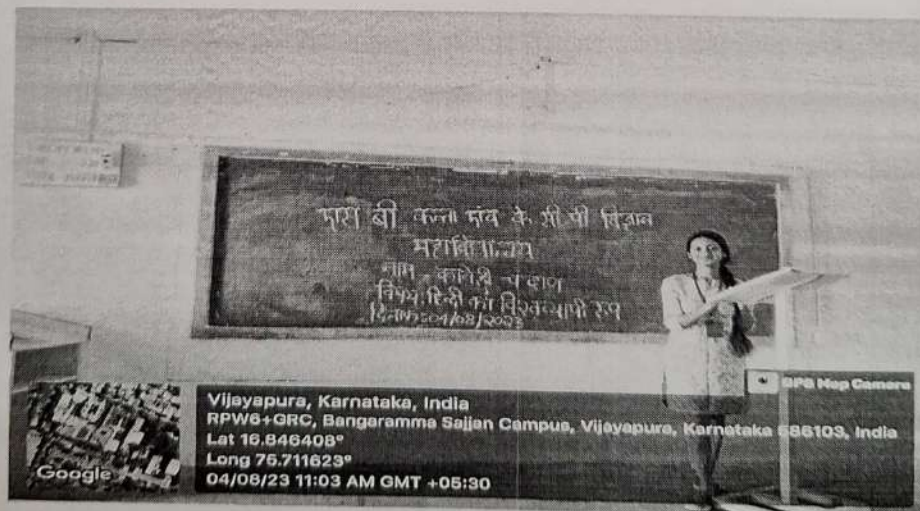 एस बी कला एंव के सी पी विज्ञान
महाविद्यालय
नाम - चव्हाण
विषय:हिन्दी का विश्वव्यापी रूप
दिनांक:04/08/2023
GPS Map Camera
Vijayapura, Karnataka, India
RPW6+GRC, Bangaramma Sajjan Campus, Vijayapura, Karnataka 586103, India
Lat 16.846408°
Long 75.711623°
04/08/23 11:03 AM GMT +05:30
Google